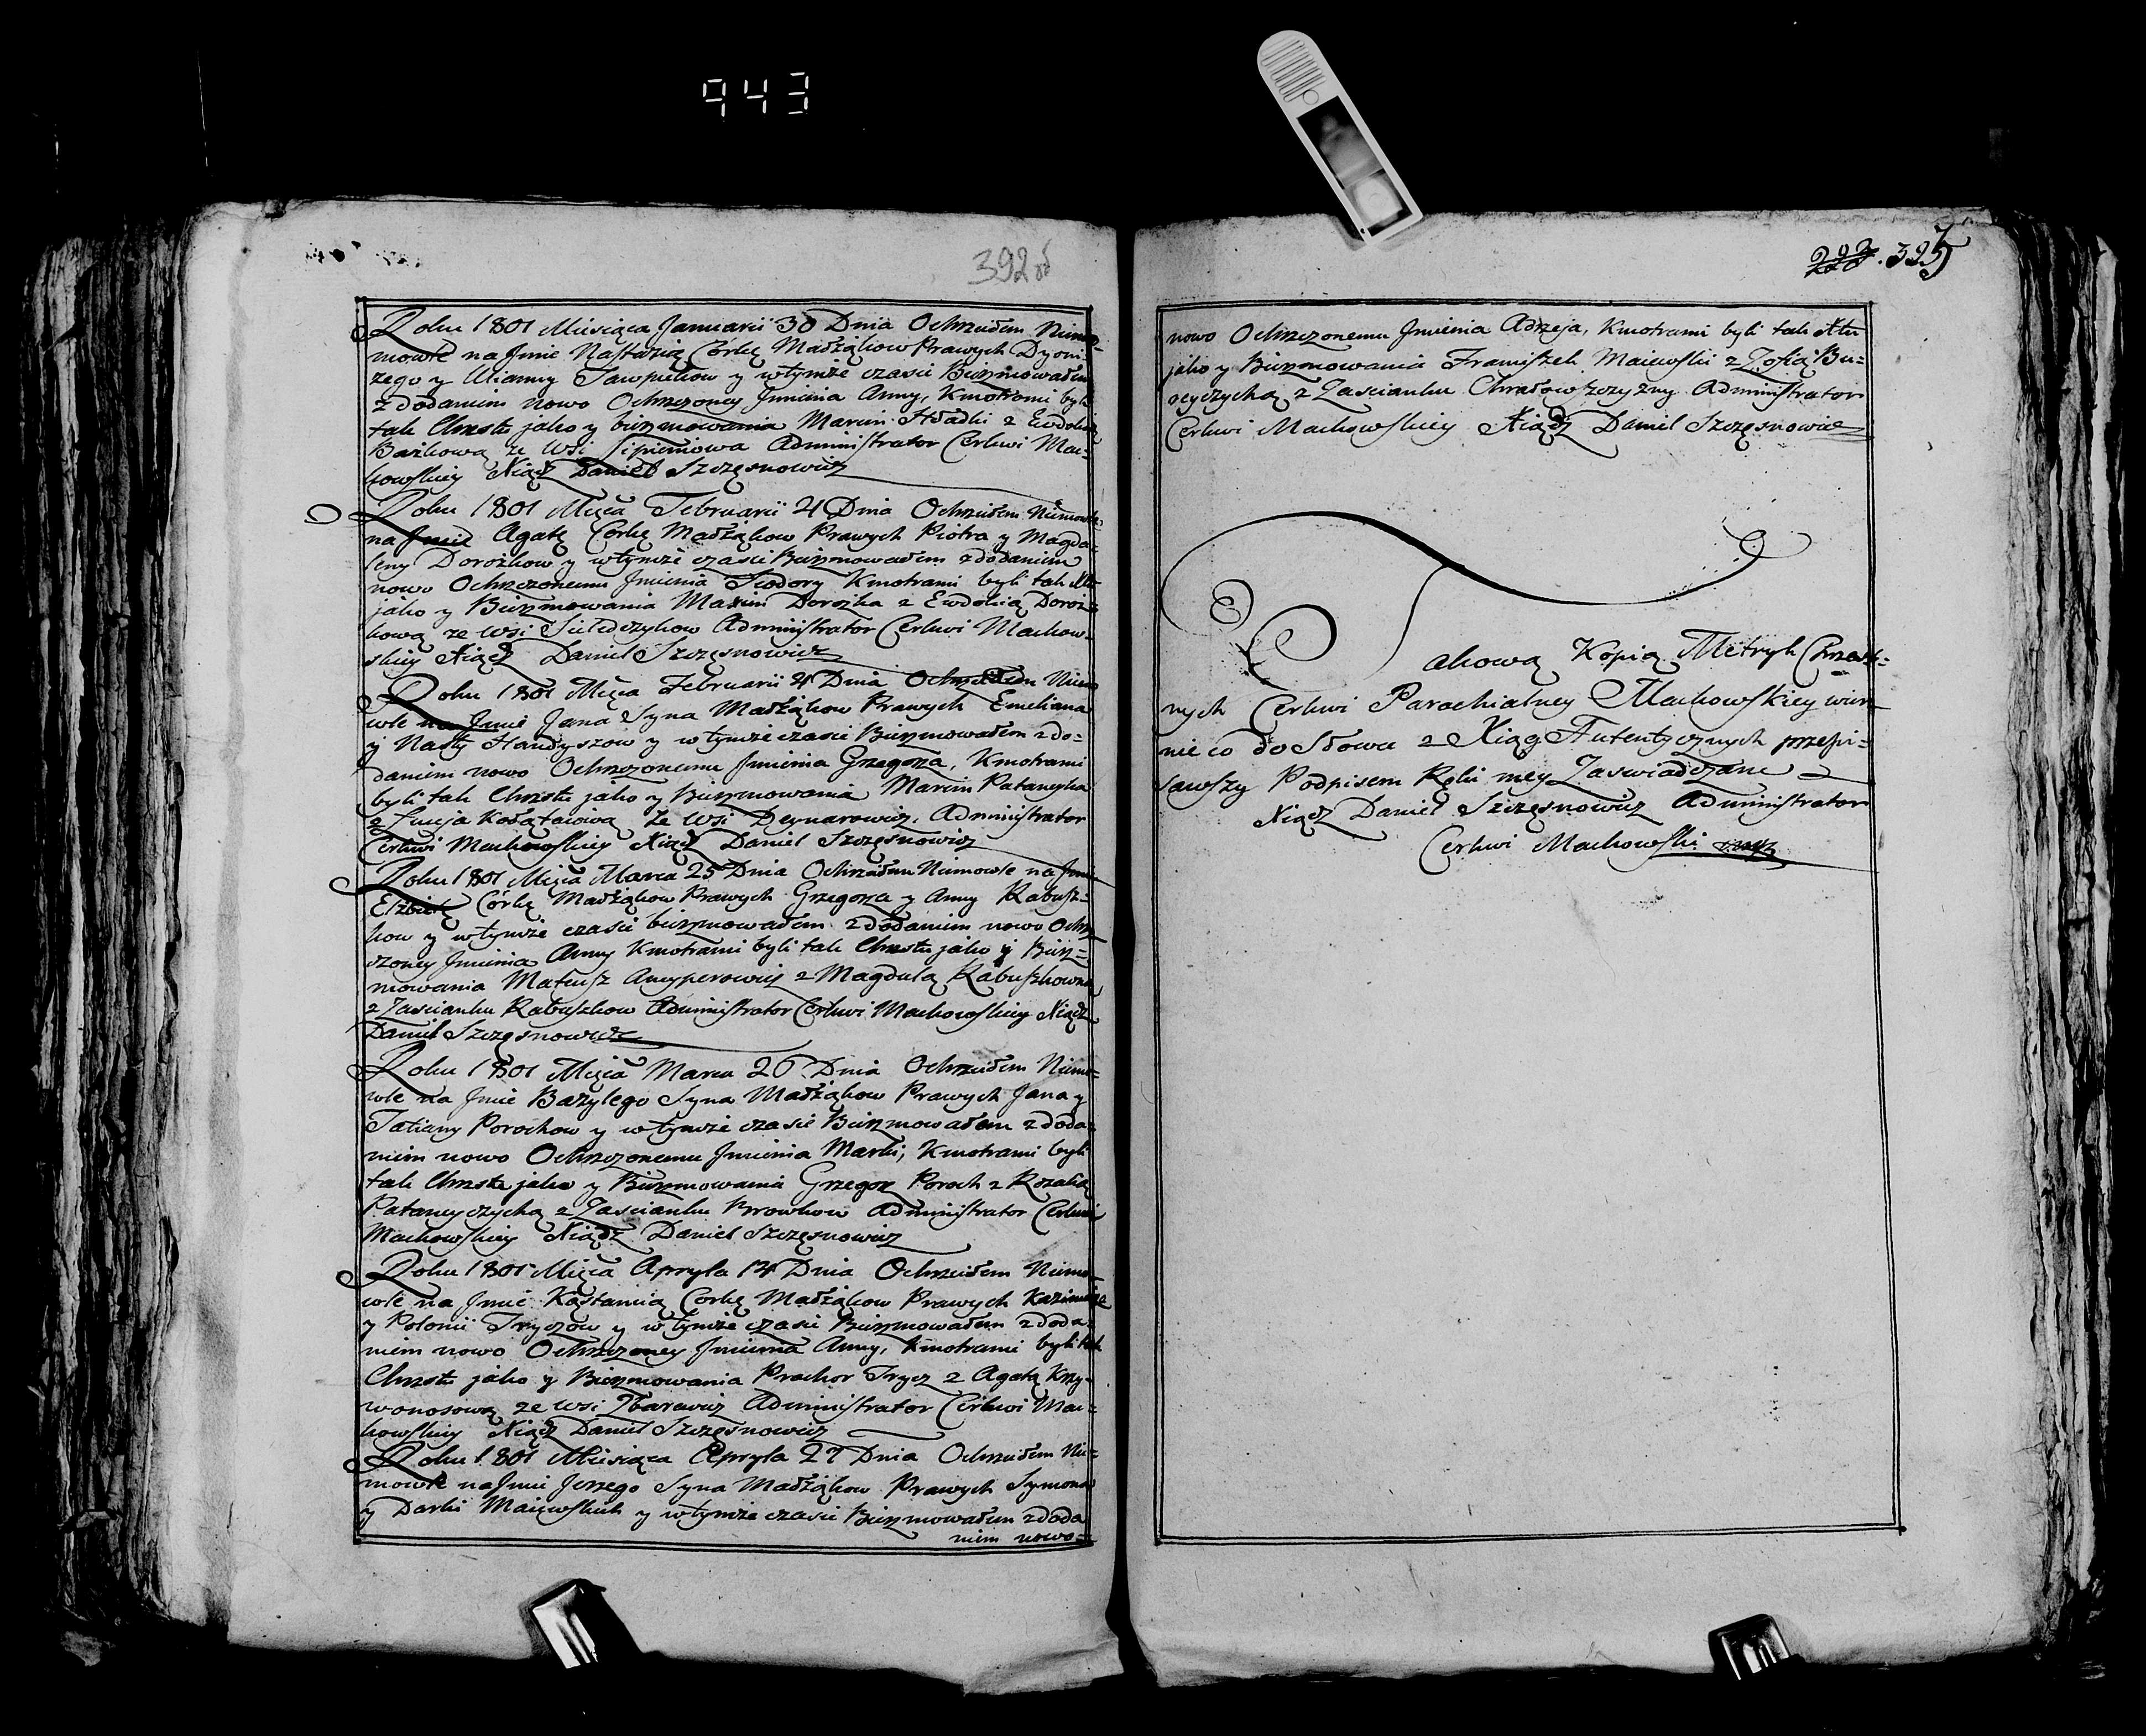 943
392 об
Roku 1801 Miesiąca Januarii 30 Dnia Ochrzciłem Niemo-
mowle na Jmie Nastazią Córkę Małżąkow Prawych Dyoni-
zego y Ulianny y wtymże czasie Bierzmowałem
z dodaniem nowo Ochrzczoney Jmienia Anny, Kmotrami byli
tak Chrzstu jako y bierzmowania Marcin Hładki z Ewdokią
Bażkową ze Wsi Administrator Cerkwi Mac-
kowskiey Xiądz Daniel Szczęsnowicz
Roku 1801 Mięca Februarii 4 Dnia Ochrzciłem Niemowle
na Jmie Agatę Corkę Małżąkow Prawych Piotra y Magda-
leny Dorożkow y wtymże czasie Bierzmowałem zdodaniem
nowo Ochrzczonemu Jmienia Teodory Kmotrami byli tak Xtu
jako y Bierzmowania Maxim Dorożka z Ewdokią Doroż-
kową ze Wsi Administrator Cerkwi Mackow-
skiey Xiądz Daniel Szczęsnowicz
Roku 1801 Mięca Februarii 4 Dnia Ochrzciłem Niemo
wle na Jmie Jana Syna Małżąkow Prawych Emeliana
y Nasty Handyszow y w tymże czasie Bierzmowałem zdo-
daniem nowo Ochrzczonemu Jmienia Grzegorza, Kmotrami
byli tak Chrzstu jako y Bierzmowania Marcin Pataneyka
z Łucją Kołątaiową ze Wsi Deynarowicz, Administrator
Cerkwi Mackowskiey Xiądz Daniel Szczęsnowicz
Roku 1801 Mięca Marca 25 Dnia Ochrzciłem Niemowle na Jmie
Elżbietę Córkę Małżąkow Prawych Grzegorza y Anny Rabusz-
kow y wtymże czasie bierzmowałem zdodaniem nowo Ochrz
czoney Jmienia Anny Kmotrami byli tak Chrzstu jako y Bierz-
mowania Mateusz Ancyperowicz z Magdulą Rabuszkowną
z Zascianku Rabuszkow Administrator Cerkwi Mackowskiey Xiądz
Daniel Szczęsnowicz
Roku 1801 Mięca Marca 26 Dnia Ochrzciłem Niemo-
wle na Jmie Bazylego Syna Małżąkow Prawych Jana y
Tatiany Porochow y wtymże czasie Bierzmowałem zdoda-
niem nowo Ochrzczonemu Jmienia Marki, Kmotrami byli
tak Chrzstu jako y Bierzmowania Grzegorz Poroch z Rozalią
Pataneyczychą z Zascianku Browkow Administrator Cerkwi
Mackowskiey Xiądz Daniel Szczęsnowicz
Roku 1801 Mięca Apryla 14 Dnia Ochrzciłem Niemo-
wle na Jmie Kąstancią Corkę Małżąkow Prawych Kazimierza
y Polonii Tryczow y w tymże czasie Bierzmowałem zdoda-
niem nowo Ochrzczoney Jmienia Anny, Kmotrami byli tak
Chrzstu jako y Bierzmowania Prochor Trycz z Agatą Krzy-
wonosową ze Wsi Administrator Cerkwi Mac-
kowskiey Xiądz Daniel Szczęsnowicz
Roku 1801 Miesiąca Apryla 27 Dnia Ochrzciłem Nie-
mowle na Jmie Jerzego Syna Małżąkow Prawych Symona
y Darki Maiewskich y wtymże czasie Bierzmowałem zdoda
niem nowo-
393
nowo Ochrzczonemu Jmienia Adrzeja, Kmotrami byli tak Xtu
jako y Bierzmowania Franiszek Maiewski z Zofią Bu-
reyczychą z Zascianku Chrałowszczyzny Administrator
Cerkwi Mackowskiey Xiądz Daniel Szczęsnowicz
Takową Kopią Metryk Chrzest-
nych Cerkwi Parachialney Mackowskiey wier-
nie co do Słowa z Xiąg Autentycznych przepi-
sawszy Podpisem Ręki mey Zaswiadczam
Xiądz Daniel Szczęsnowicz Administrator
Cerkwi Mackowski mp